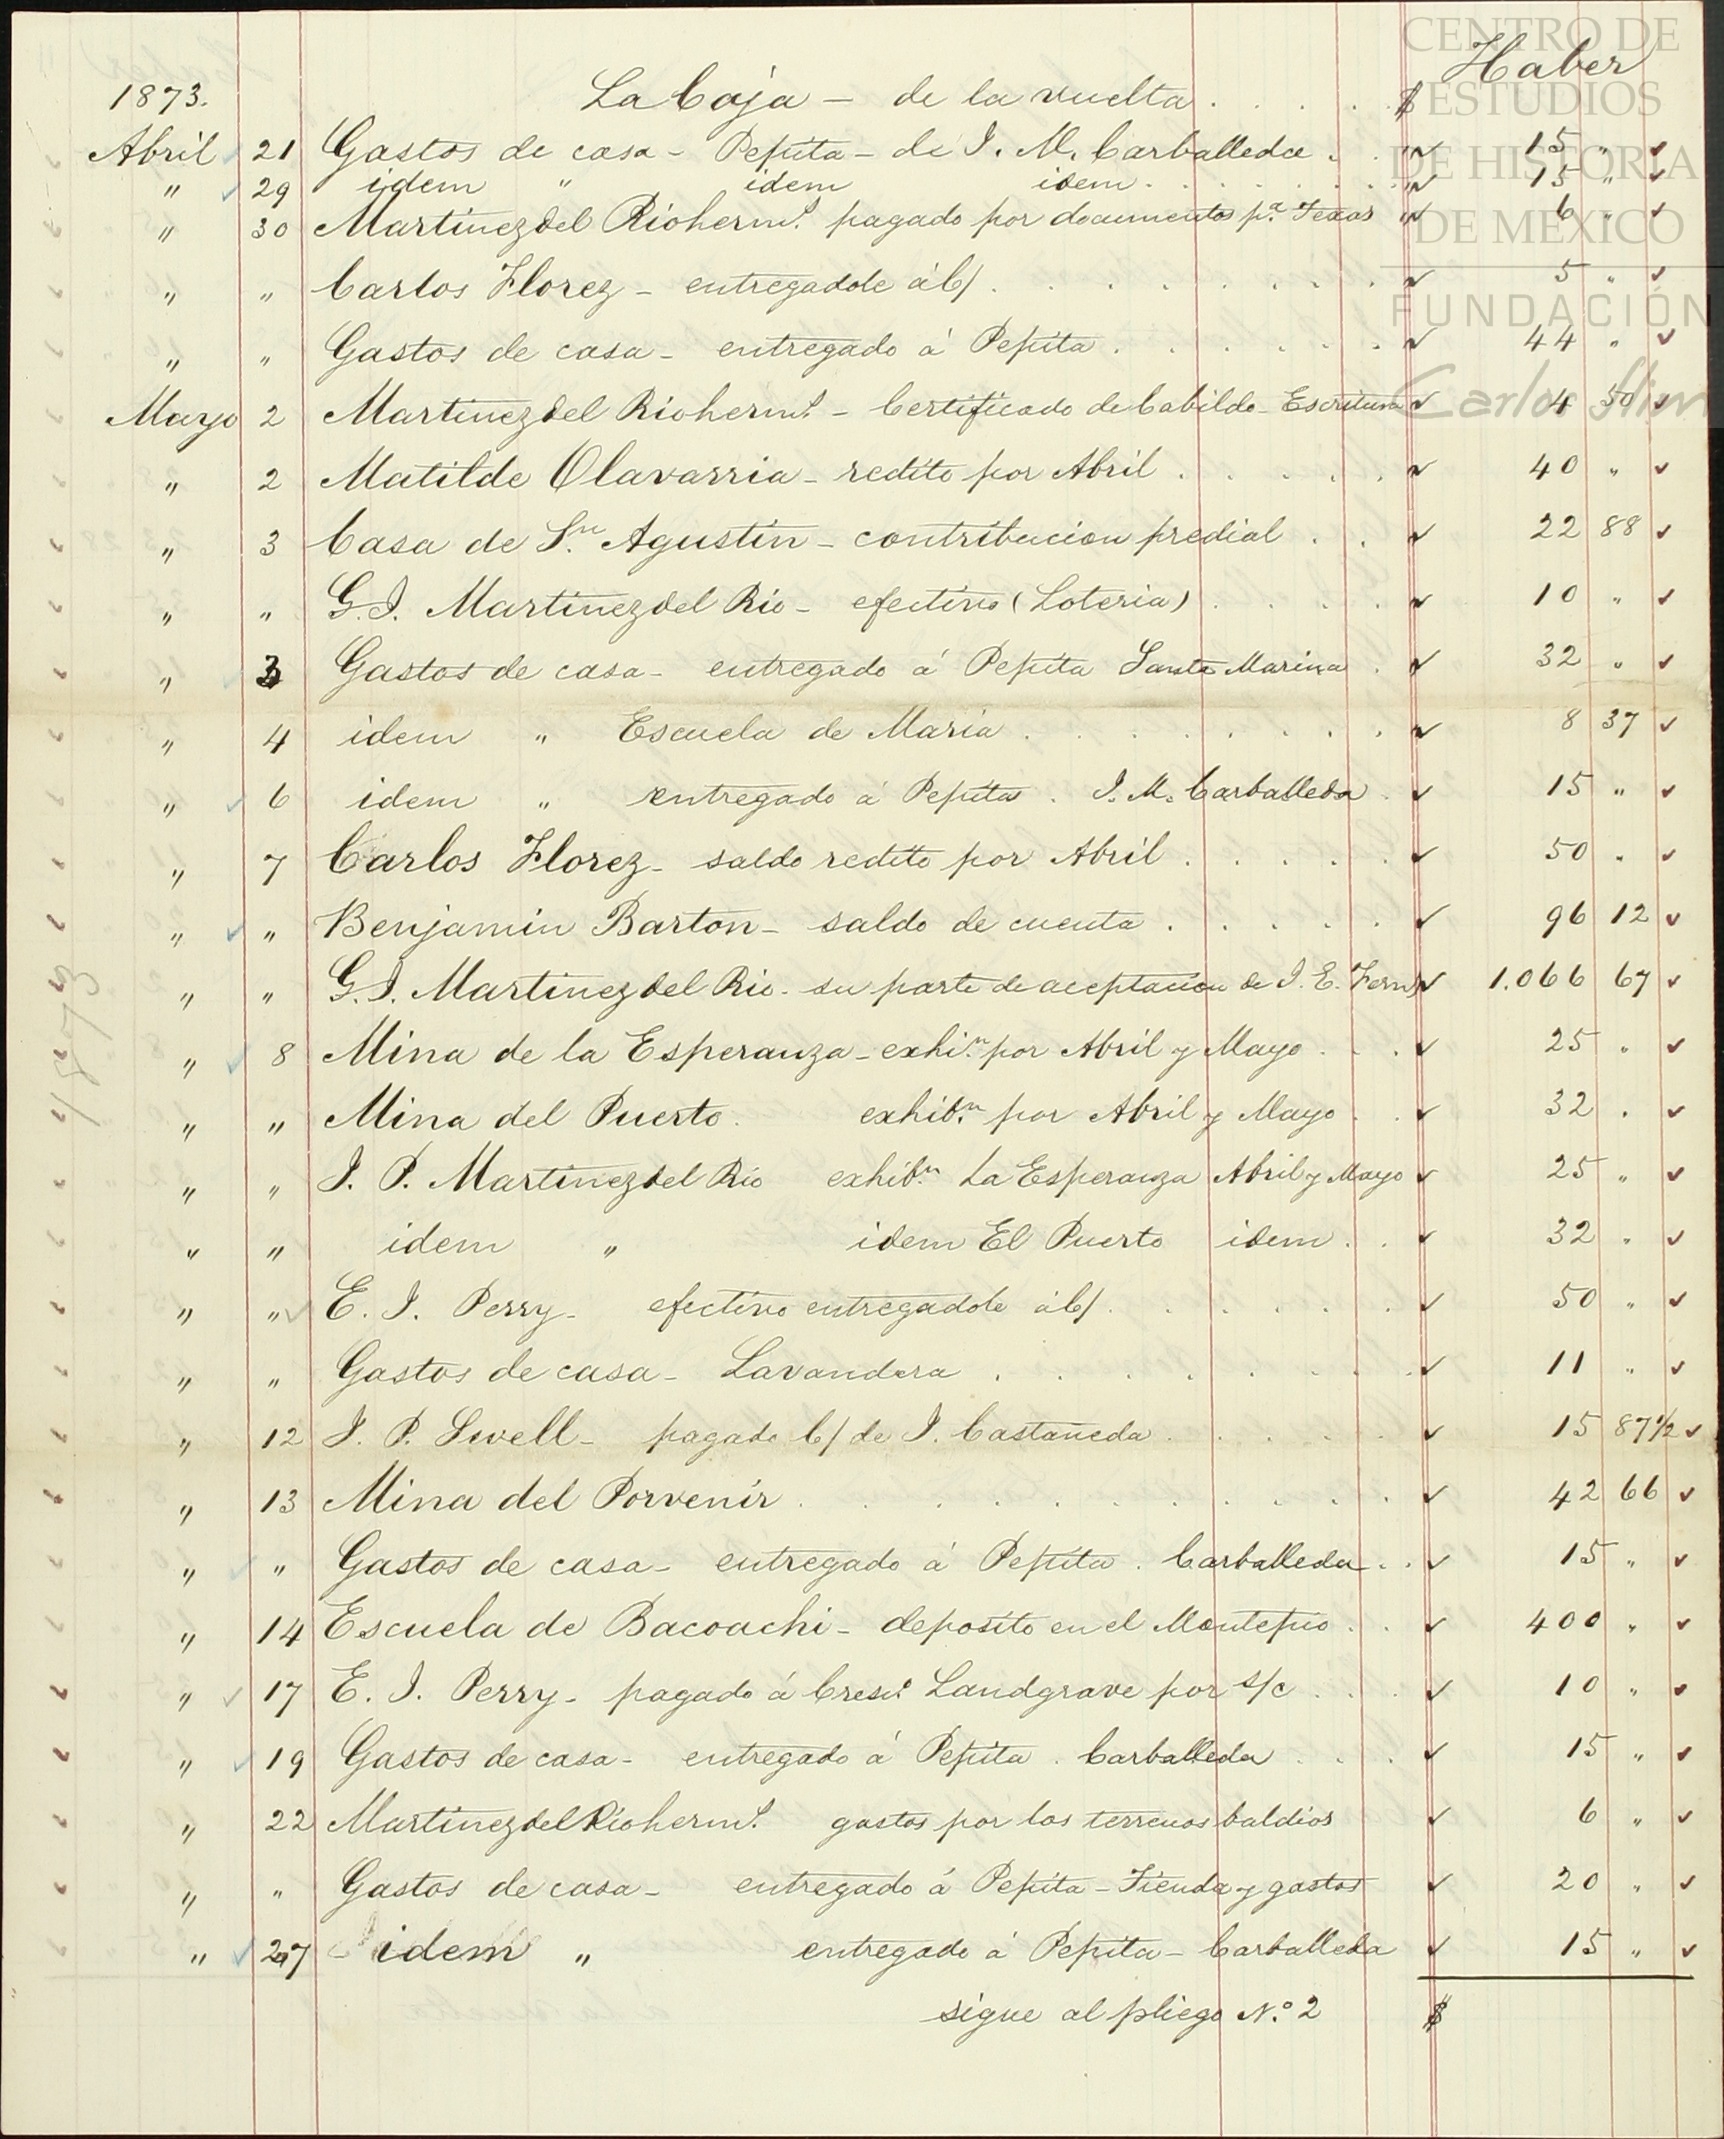 CENTRO DE
ESTUDIOS
DE HISTORIA
DE MÉXICO
FUNDACIÓN
Carlos Slim
Haber
1873. La Caja - de la vuelta . . . . $
Abril 21 Gastos de casa - Pepita - de J. M. Carballeda . . " 15 "
" 29 idem " idem idem . . . . . " 15 "
" 30 Martinez del Rio herms. pagado por documentos pa. Texas " 6 "
" " Carlos Florez - entregadole á C/ . . . . . . . " 5 "
" " Gastos de casa - entregado á Pepita . . . . . " 44 "
Mayo 2 Martinez del Rio herms. - Certificado de Cabildo - Escritura " 4 50
" 2 Matilde Olavarria - redito por Abril . . . . . " 40 "
" 3 Casa de Sn. Agustin - contribucion predial . . " 22 88
" " G. J. Martinez del Rio - efectivo (Loteria) . . . . " 10 "
" 3 Gastos de casa - entregado á Pepita Santa Marina . " 32 "
" 4 idem " Escuela de Maria . . . . . . . " 8 37
" 6 idem " entregado á Pepita . J. M. Carballeda . " 15 "
" 7 Carlos Florez - saldo redito por Abril . . . . . " 50 "
" " Benjamin Barton - saldo de cuenta . . . . . " 96 12
" " G. J. Martinez del Rio - su parte de aceptacion de J. E. Fern " 1.066 67
" 8 Mina de la Esperanza - exhin. por Abril y Mayo . . . " 25 "
" " Mina del Puerto . exhibn. por Abril y Mayo . . " 32 "
" " J. P. Martinez del Rio exhibn. La Esperanza Abril y Mayo " 25 "
" " idem " idem El Puerto idem . . " 32 "
" " E. J. Perry - efectivo entregadole á C/ . . . . . . " 50 "
" " Gastos de casa - Lavandera . . . . . . . . " 11 "
" 12 J. P. Swell - pagado C/ de J. Castañeda . . . . . " 15 87 1/2
" 13 Mina del Porvenir . . . . . . . . . . " 42 66
" " Gastos de casa - entregado á Pepita . Carballeda . . " 15 "
" 14 Escuela de Bacoachi - deposito en el Montepio . . " 400 "
" 17 E. J. Perry - pagado á Landgrave por s/c . . . " 10 "
" 19 Gastos de casa - entregado á Pepita . Carballeda . . . " 15 "
" 22 Martinez del Rio herms. gastos por los terrenos baldios " 6 "
" " Gastos de casa - entregado á Pepita - Tienda y gastos " 20 "
" 27 - idem " entregado á Pepita - Carballeda " 15 "
sigue al pliego N.º 2 $
1873